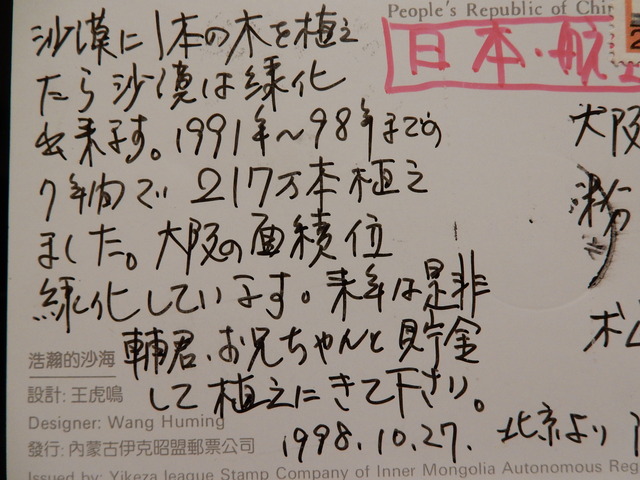 People's Republic of Chi
日本・航
沙漠に1本の木を植え
たら沙漠は緑化
出来ます。1991年〜98年までの
7年間で 217万本植え
ました。大阪の面積位
緑化しています。来年は是非
輔君、お兄ちゃんと貯金
して植えにきて下さい。
1998.10.27. 北京より
大阪
浩瀚的沙海
設計:王虎鳴
Designer: Wang Huming
發行:內蒙古伊克昭盟郵票公司
Issued by: Yikeza league Stamp Company of Inner Mongolia Autonomous Reg